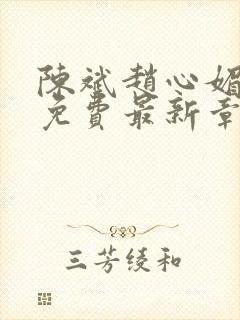 陳斌趙心媚
免費最新章
三芳綾和